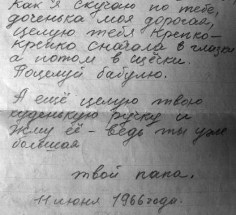 Как я скучаю по тебе,
доченька моя дорогая,
целую тебя крепко-
крепко сначала в глазки
а потом в щёчки.
Поцелуй бабулю.
А ещё целую твою
худенькую ручку и
жму её - ведь ты уже
большая
твой папа.
11 июня 1966 года.